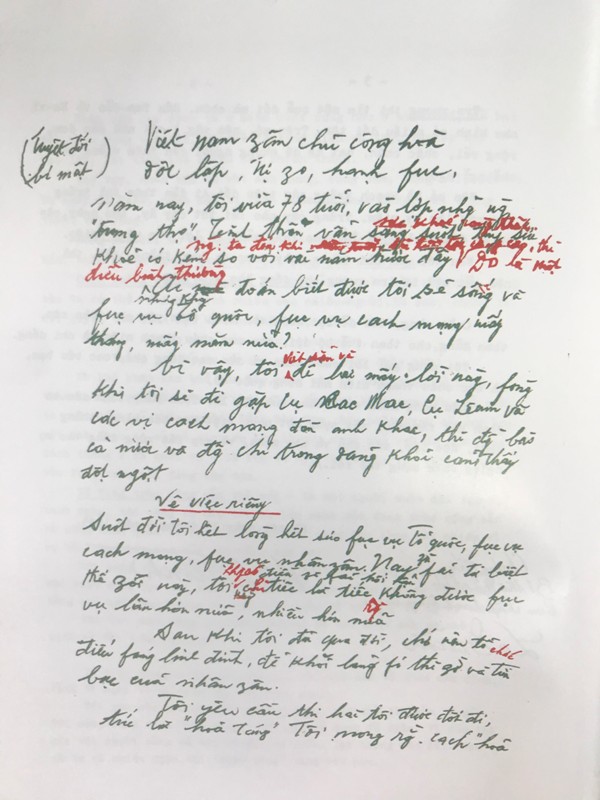 Tuyệt đối
bí mật
Việt nam zân chủ cộng hoà
độc lập, tự zo, hạnh fúc,
Năm nay, tôi vừa 78 tuổi, vào lớp những ng
"trung thọ". Tinh thần vẫn sáng suốt, tuy sức
khoẻ có kém so với vài năm trước đây. ng. ta đến khi
Đó là một
điều bình thường
nhưng
đoán biết được tôi sẽ sống và
fục vụ tổ quốc, fục vụ cách mạng mấy
tháng, mấy năm nữa?
Vì vậy, tôi viết sẵn và để lại mấy lời này, fòng
khi tôi sẽ đi gặp cụ Các Mác, Cụ Lênin và
các vị cách mạng đàn anh khác, thì đ/g bào
cả nước và đ/g chí trong đảng khỏi cảm thấy
đột ngột
Về việc riêng
Suốt đời tôi hết lòng hết sức fục vụ Tổ quốc, fục vụ
cách mạng, fục vụ nhân zân. Nay zù fải từ biệt
thế zới này, tôi không có điều gì fải hối hận
chỉ tiếc là tiếc rằng không được fục
vụ lâu hơn nữa, nhiều hơn nữa
Sau khi tôi đã qua đời, chớ nên tổ chức
điếu fúng linh đình, để khỏi lãng fí thì giờ và tiền
bạc của nhân zân.
Tôi yêu cầu thi hài tôi được đốt đi,
tức là "hoả táng" Tôi mong rằng. cách "hoả